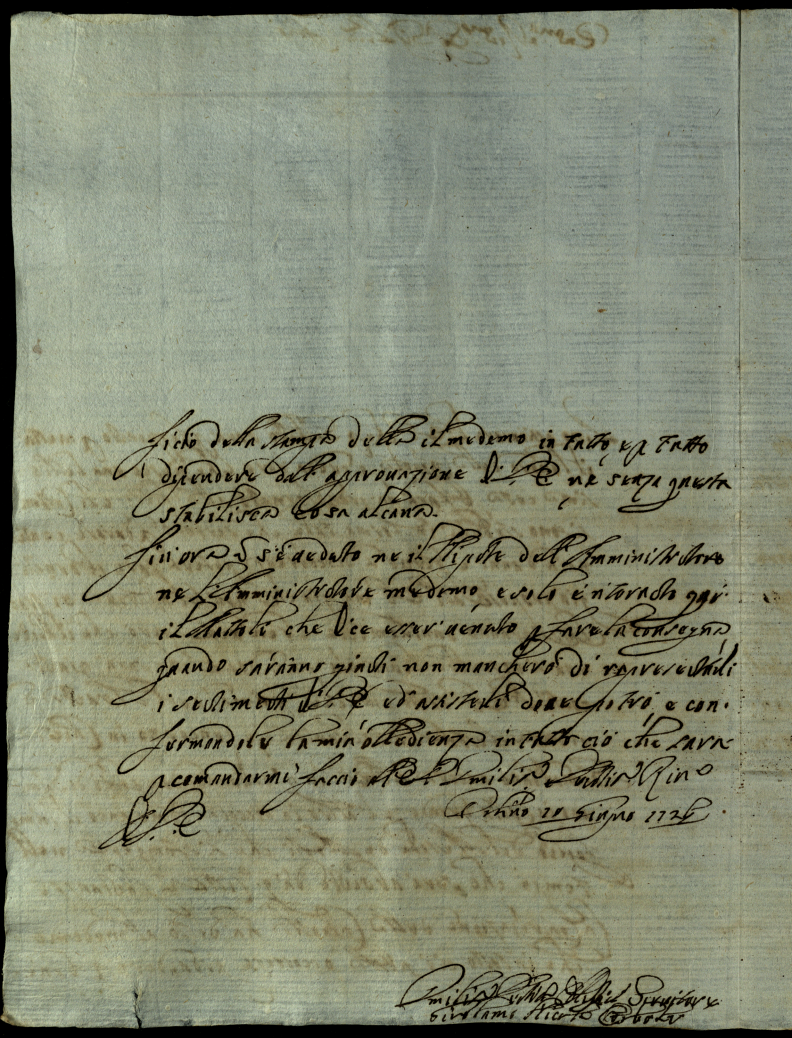 ficio della stampa della il medemo in tutto e p tutto
dipendere dall' approuazione di V. E. ne senza questa
stabilisca cosa alcuna.
Fin' ora s' è ueduto ne il Nipote dell' Amministratore
ne l' Amministratore medemo, e solo è ritornato
il che dice esser uenuto p fare la consegna
quando saranno giunti non mancherò di rapresentarli
i sentimenti di V. E. ed' assisterli doue potrò, e con-
fermandole la mia obbedienza in tutto ciò che sara
p comandarmi faccio all' E. V. Umilissa
V. E.
Urbino 20 Giugno 1726
Umilissimo Seruitore
Girolamo